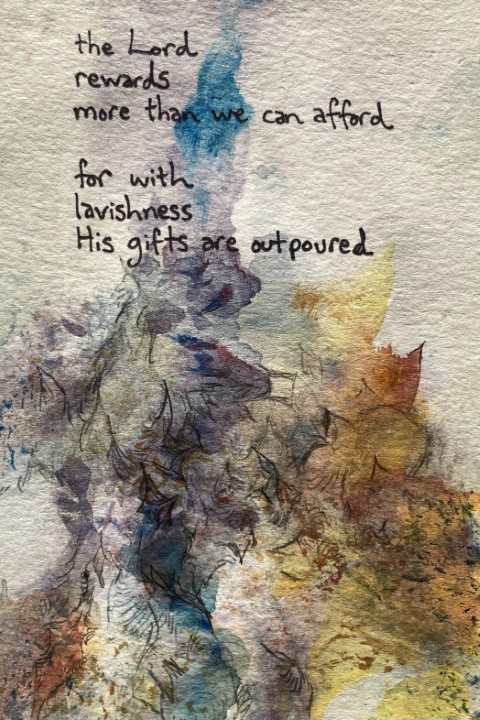 the Lord
rewards
more than we can afford
for with
lavishness
His gifts are outpoured